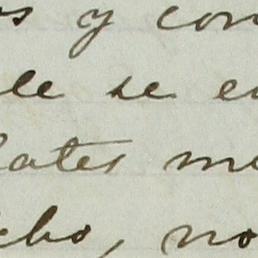 os y con
le se e
lates me
cho, no